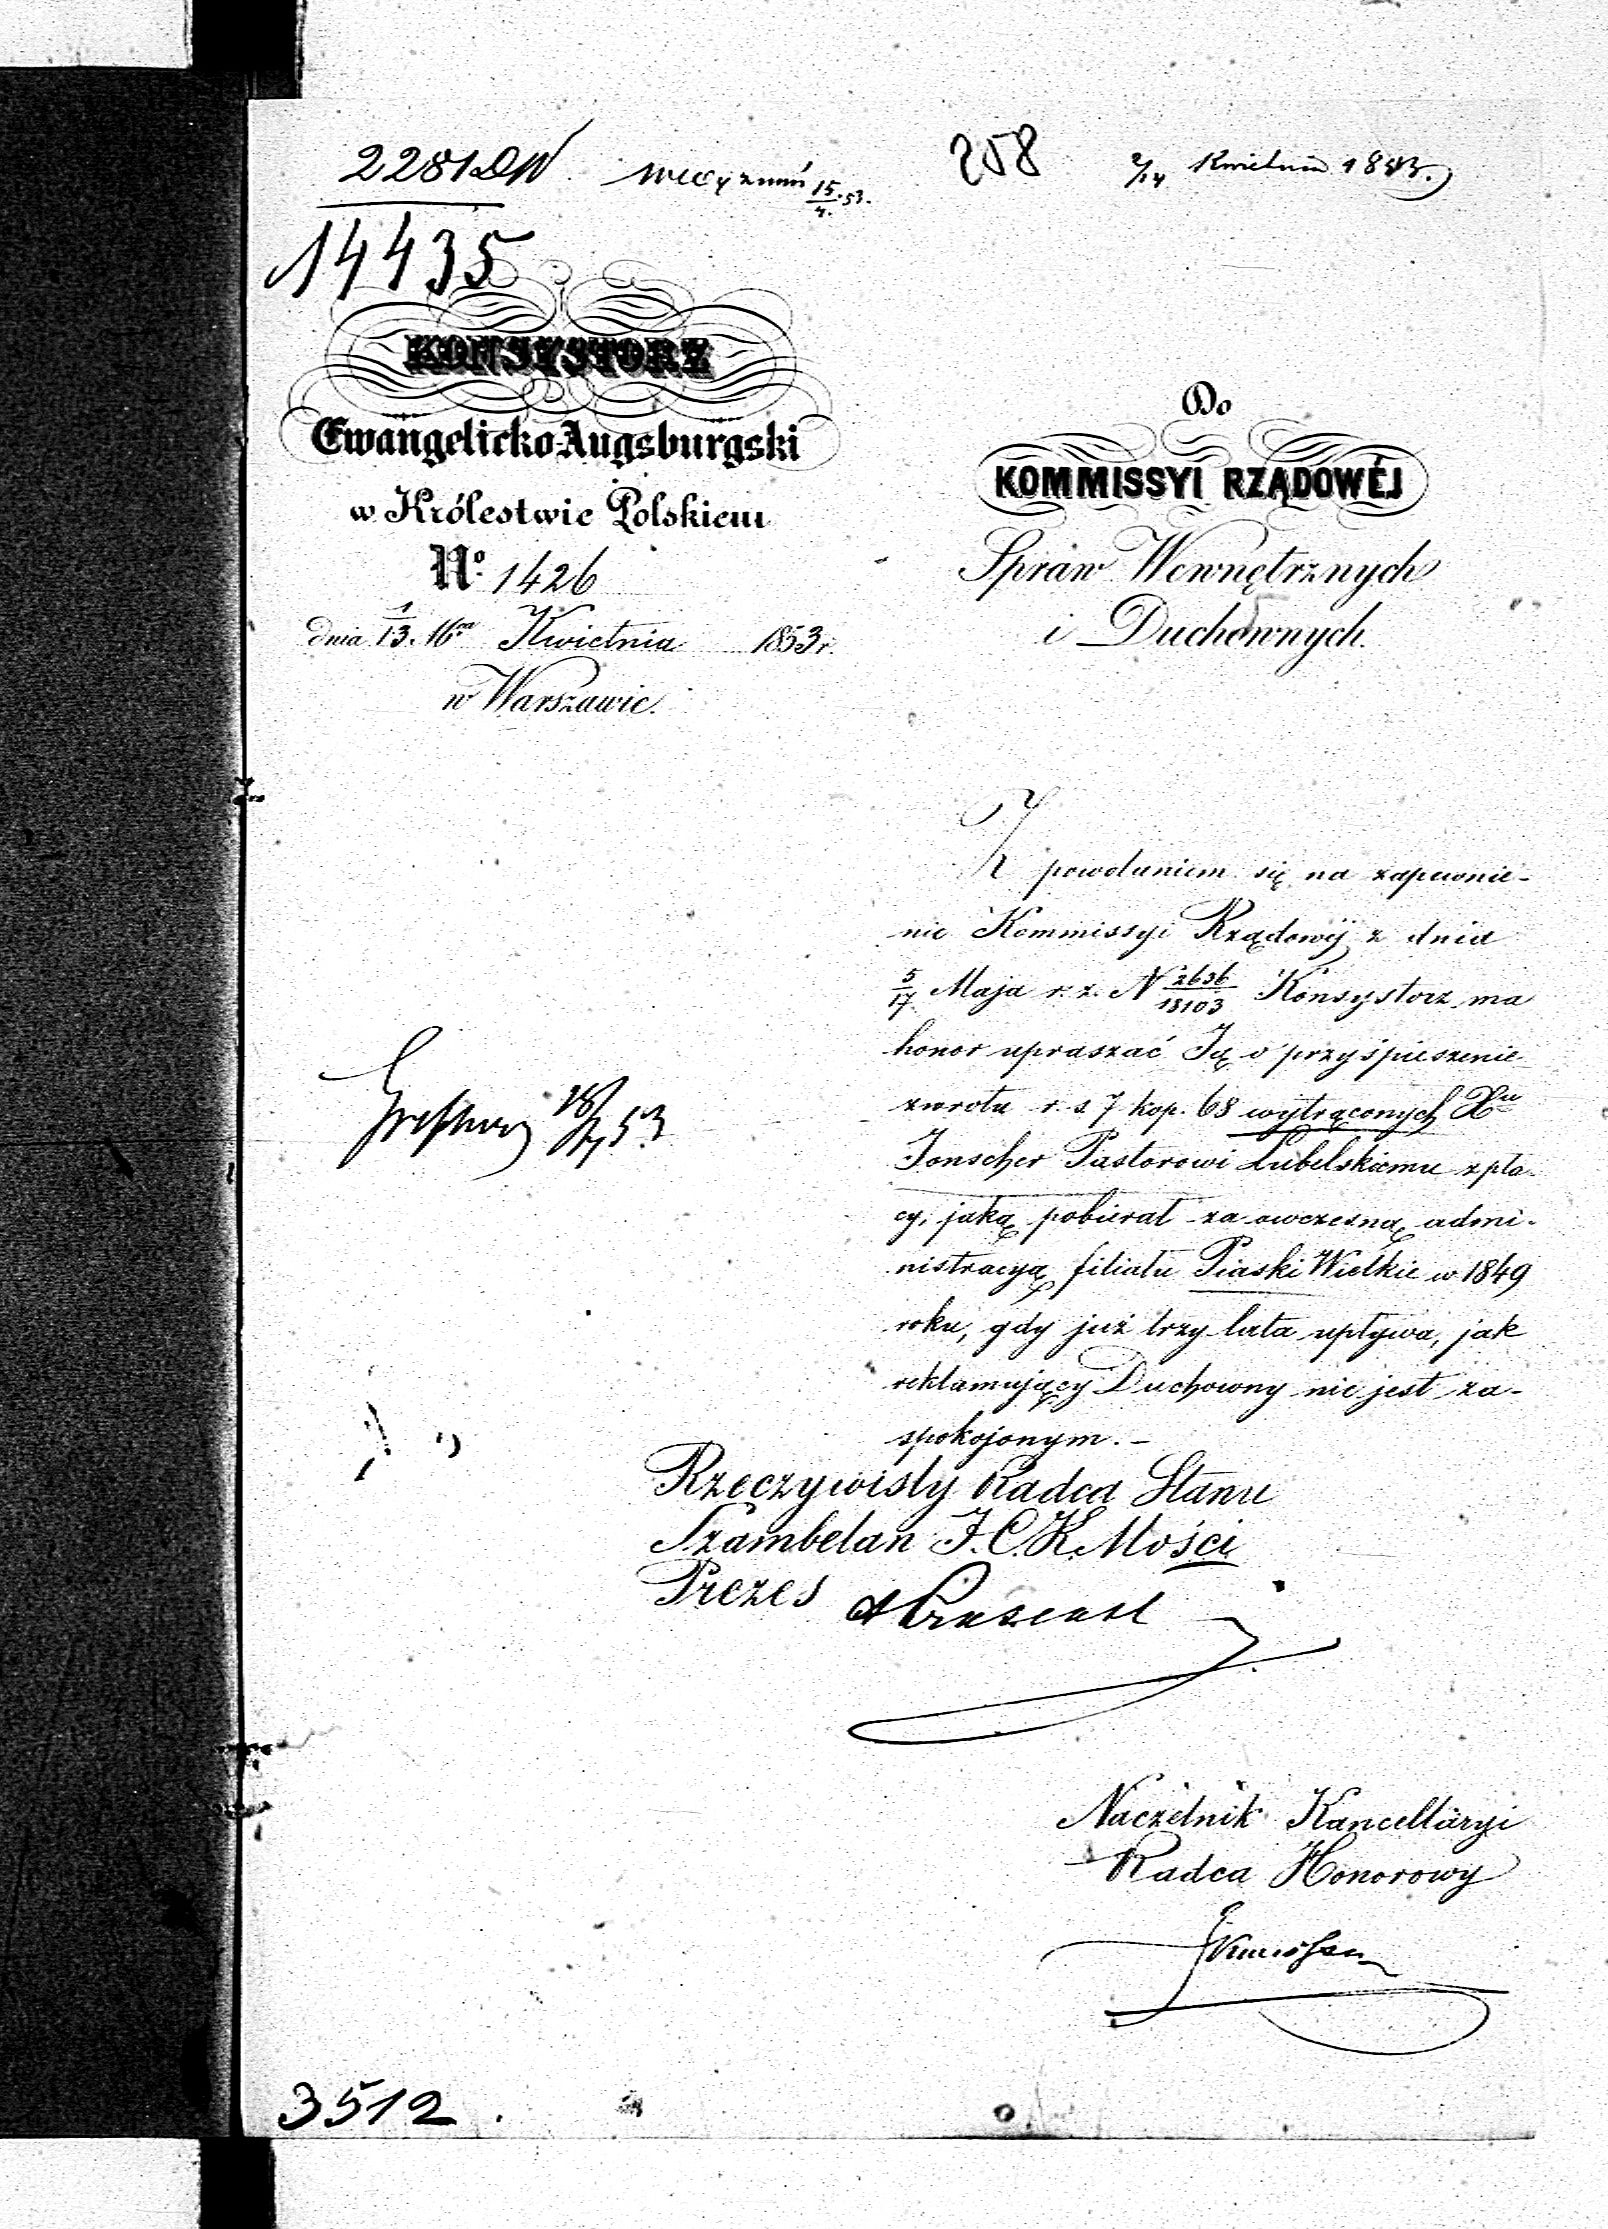 2281 DW
14435
15/4. 53.
258
2/14 Kwietnia 1853.
KONSYSTORZ
Ewangelicko-Augsburgski
w Królestwie Polskiem
No. 1426
dnia 1/13. 16m Kwietnia 1853 r.
w Warszawie.
Do
KOMMISSYI RZĄDOWÉJ
Spraw Wewnętrznych
i Duchownych.
Z powołaniem się na zapewnie-
nie Kommissyi Rządowéj z dnia
5/17 Maja r. z. N 2636/18103 Konsystorz ma
honor upraszać Ją o przyśpieszenie
zwrotu r. s. 7 kop. 68 wytrąconych Xu
Jonscher Pastorowi Lubelskiemu z pła-
cy, jaką pobierał za owczesną admi-
nistracyą filiału Piaski Wielkie w 1849
roku, gdy już trzy lata upływa, jak
reklamujący Duchowny nie jest za-
spokojonym. -
Rzeczywisty Radca Stanu
Szambelan J. C. K. Mości
Prezes
Naczelnik Kancellaryi
Radca Honorowy
3512.